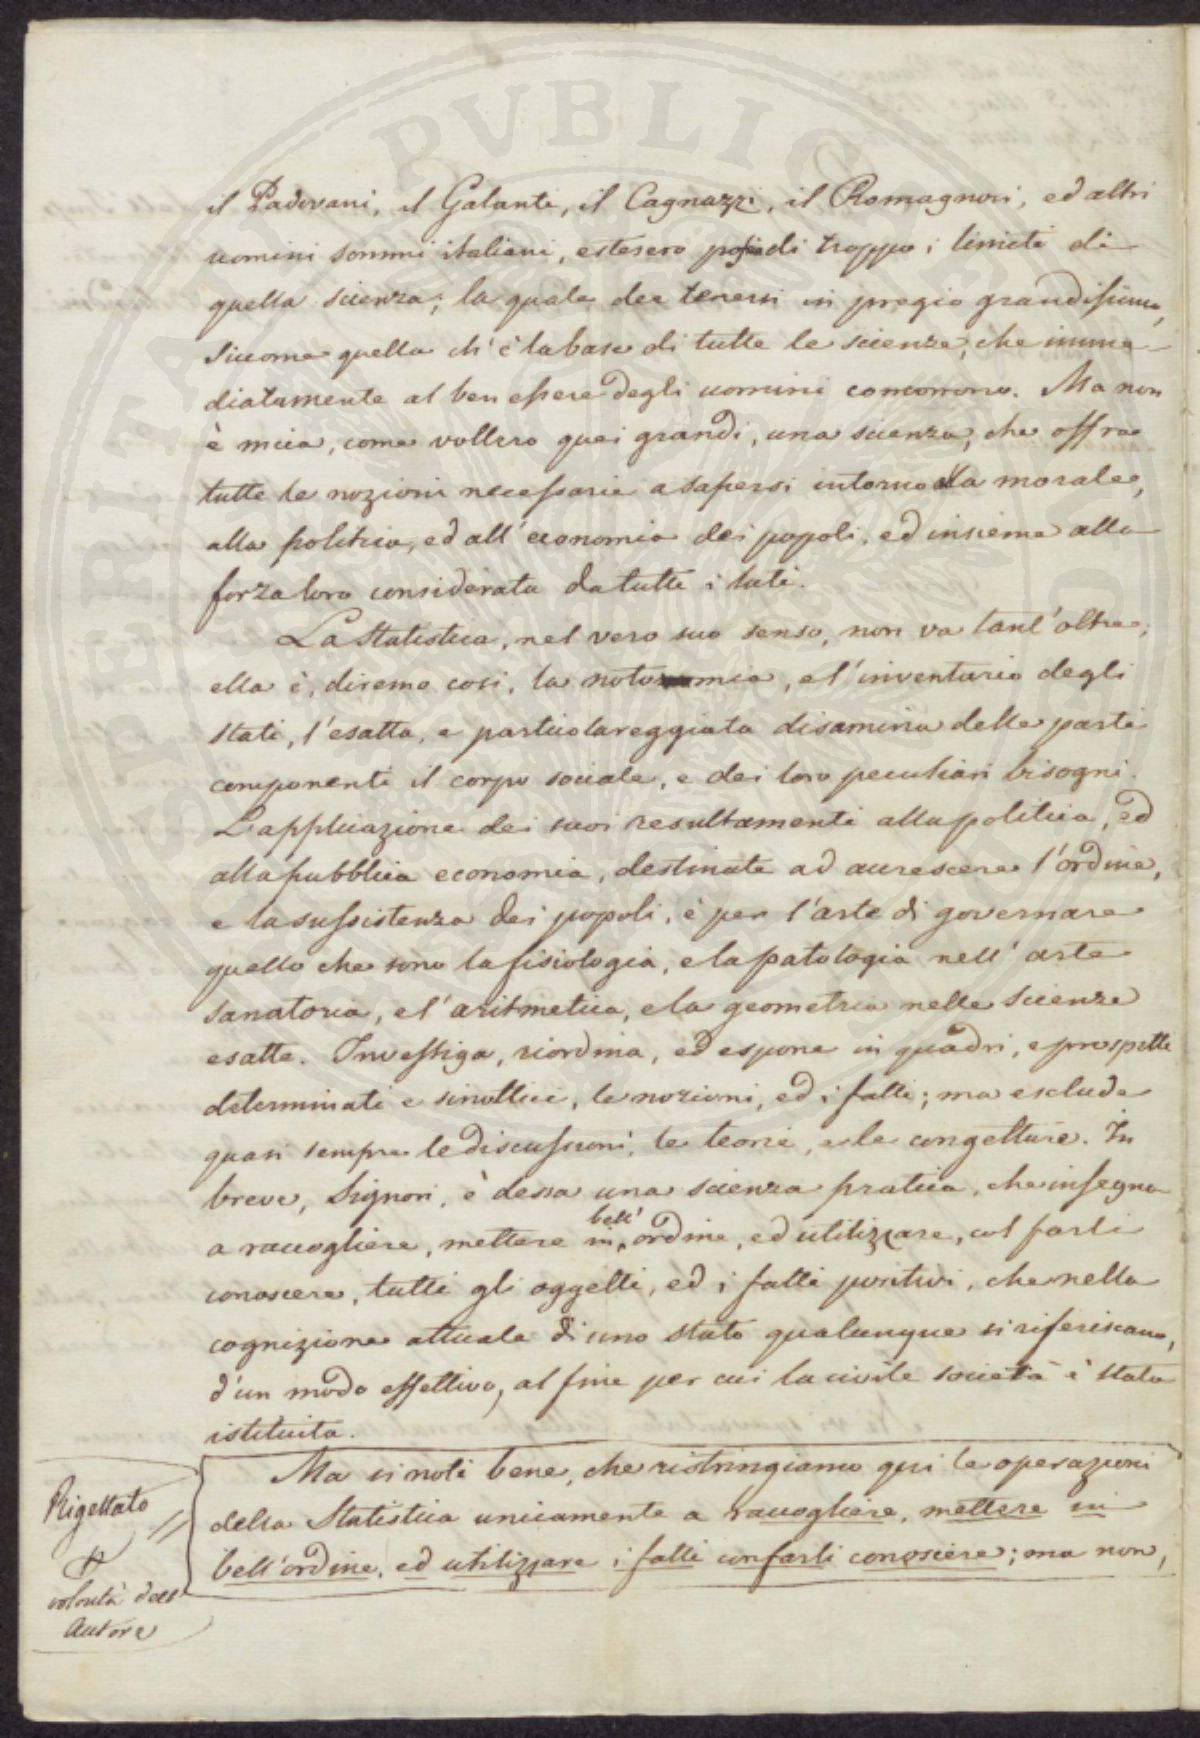 il Padovani, il Galanti, il Cagnazzi, il Romagnosi, ed altri
uomini sommi italiani, estesero poscia di troppo i limiti di
quella scienza; la quale dee tenersi in pregio grandissimo,
siccome quella ch'è la base di tutte le scienze, che imme-
diatamente al ben essere degli uomini concorrono. Ma non
è mica, come vollero quei grandi, una scienza, che offra
tutte le nozioni necessarie a sapersi intorno alla morale,
alla politica, ed all'economia dei popoli, ed insieme alla
forza loro considerata da tutti i lati.
La Statistica, nel vero suo senso, non va tant'oltre;
ella è, diremo così, la notomia, e l'inventario degli
stati, l'esatta, e particolareggiata disamina delle parti
componenti il corpo sociale, e dei loro peculiari bisogni.
L'applicazione dei suoi resultamenti alla politica, ed
alla pubblica economia, destinate ad accrescere l'ordine,
e la sussistenza dei popoli, è per l'arte di governare
quello che sono la fisiologia, e la patologia nell'arte
sanatoria, e l'aritmetica, e la geometria nelle scienze
esatte. Investiga, riordina, ed espone in quadri, e prospetti
determinati e sinottici, le nozioni, ed i fatti; ma esclude
quasi sempre le discussioni, le teorie, e le congetture. In
breve, Signori, è dessa una scienza pratica, che insegna
a raccogliere, mettere in bell'ordine, ed utilizzare, col farli
conoscere, tutti gli oggetti, ed i fatti positivi, che nella
cognizione attuale di uno stato qualunque si riferiscano,
d'un modo effettivo, al fine per cui la civile società è stata
istituita.
Ma si noti bene, che ristringiamo qui le operazioni
della Statistica unicamente a raccogliere, mettere in
bell'ordine, ed utilizzare i fatti con farli conoscere; ma non,
Rigettato
volontà dell'
Autore
SPERITATE PVBLICA